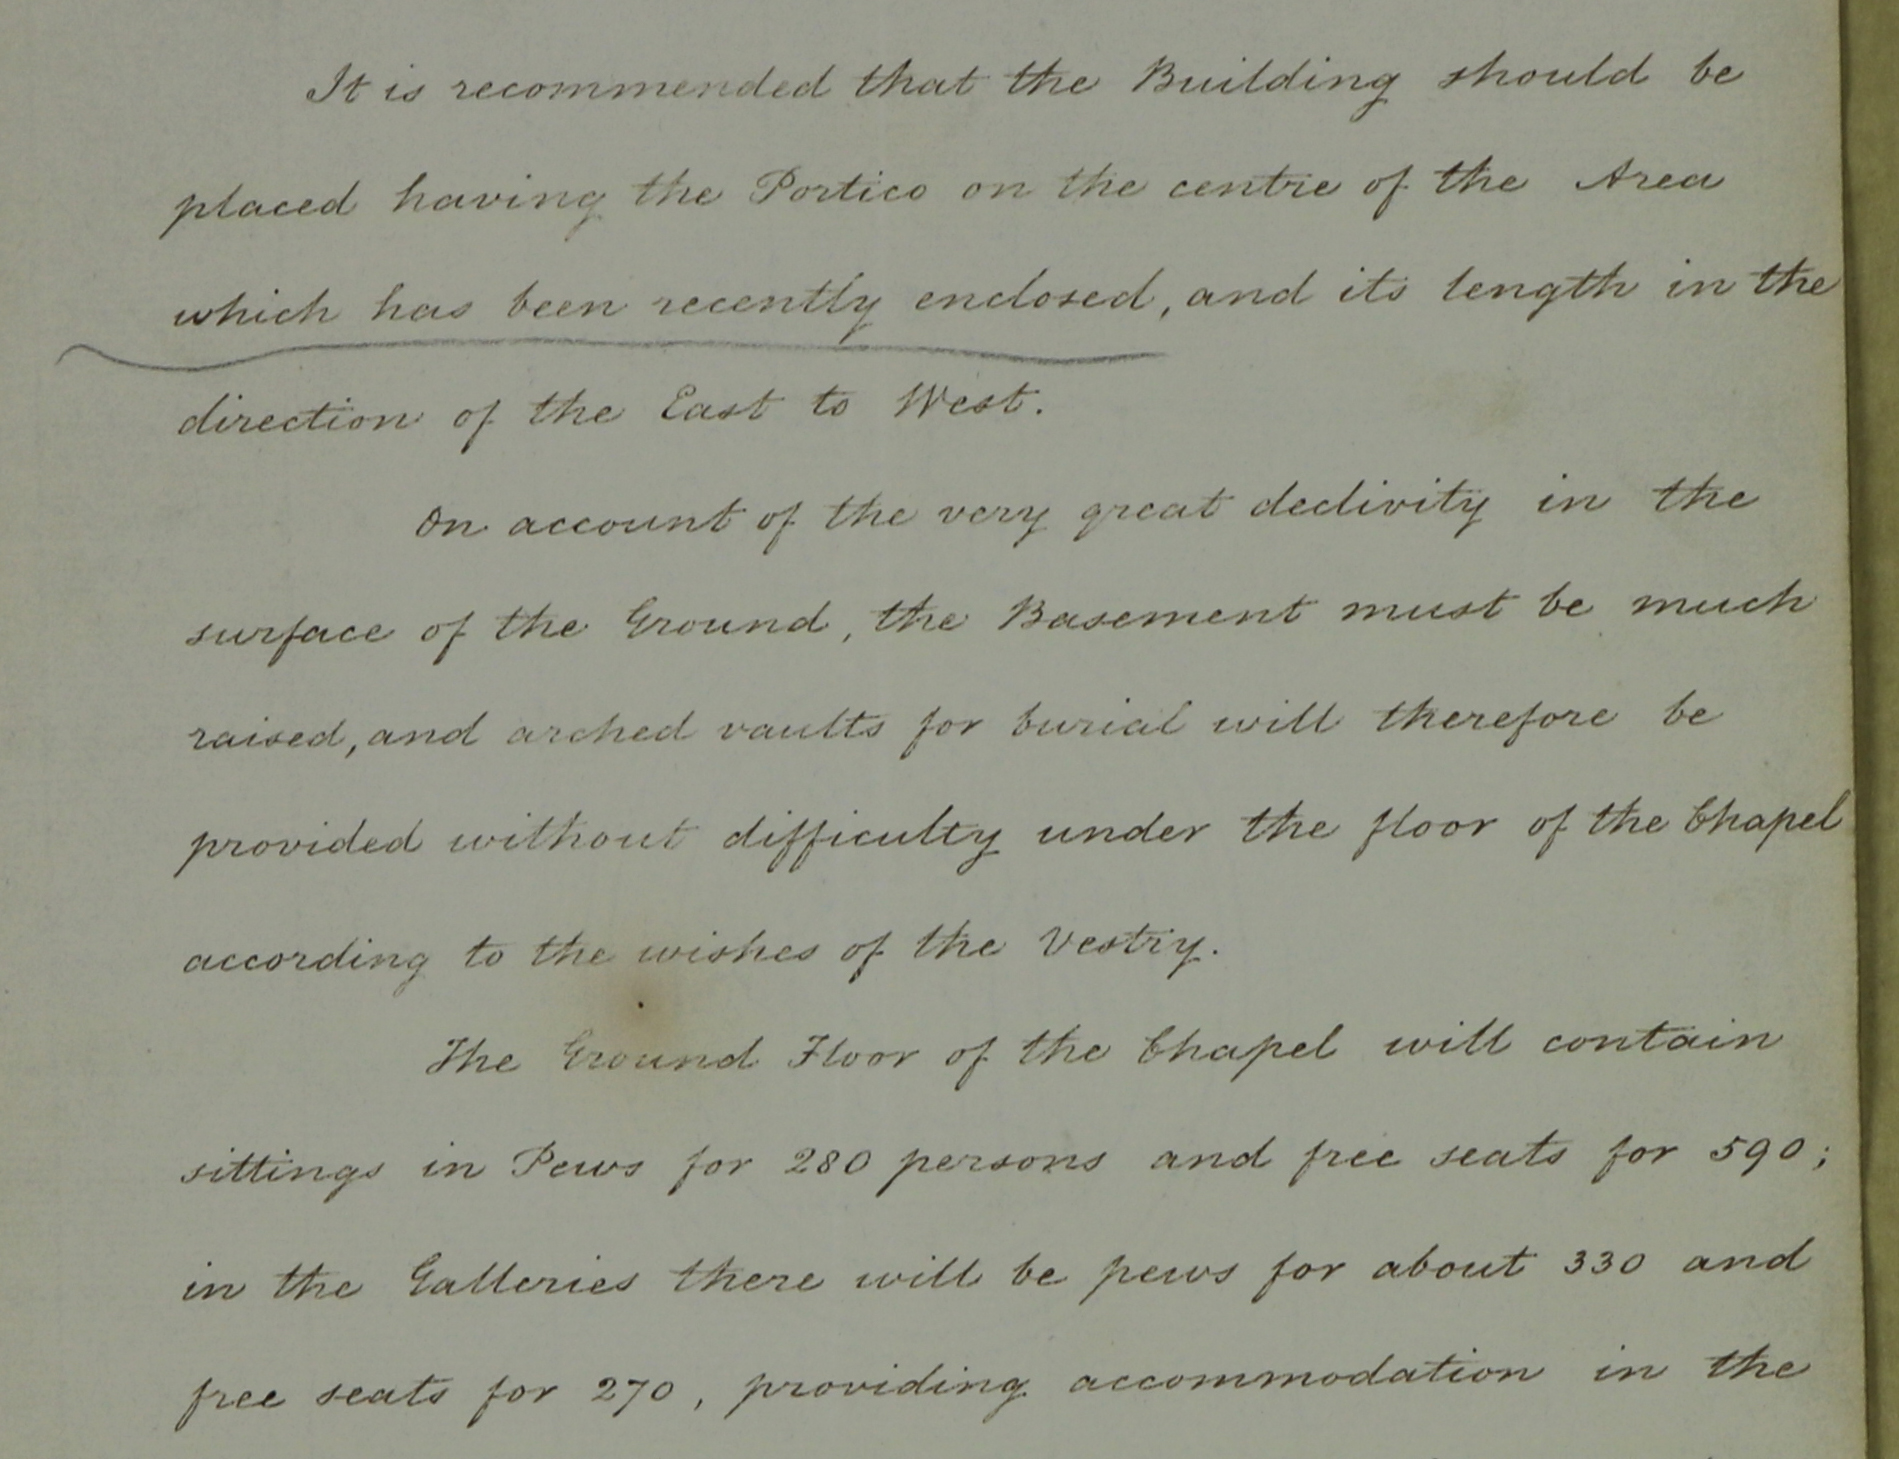 It is recommended that the Building should be
placed having the Portico on the centre of the Area
which has been recently enclosed, and its length in the
direction of the East to West.
On account of the very great declivity in the
surface of the Ground, the Basement must be much
raised, and arched vaults for burial will therefore be
provided without difficulty under the floor of the Chapel
according to the wishes of the Vestry.
The Ground Floor of the Chapel will contain
sittings in Pews for 280 persons and free seats for 590;
in the Galleries there will be pews for about 330 and
free seats for 270, providing accommodation in the